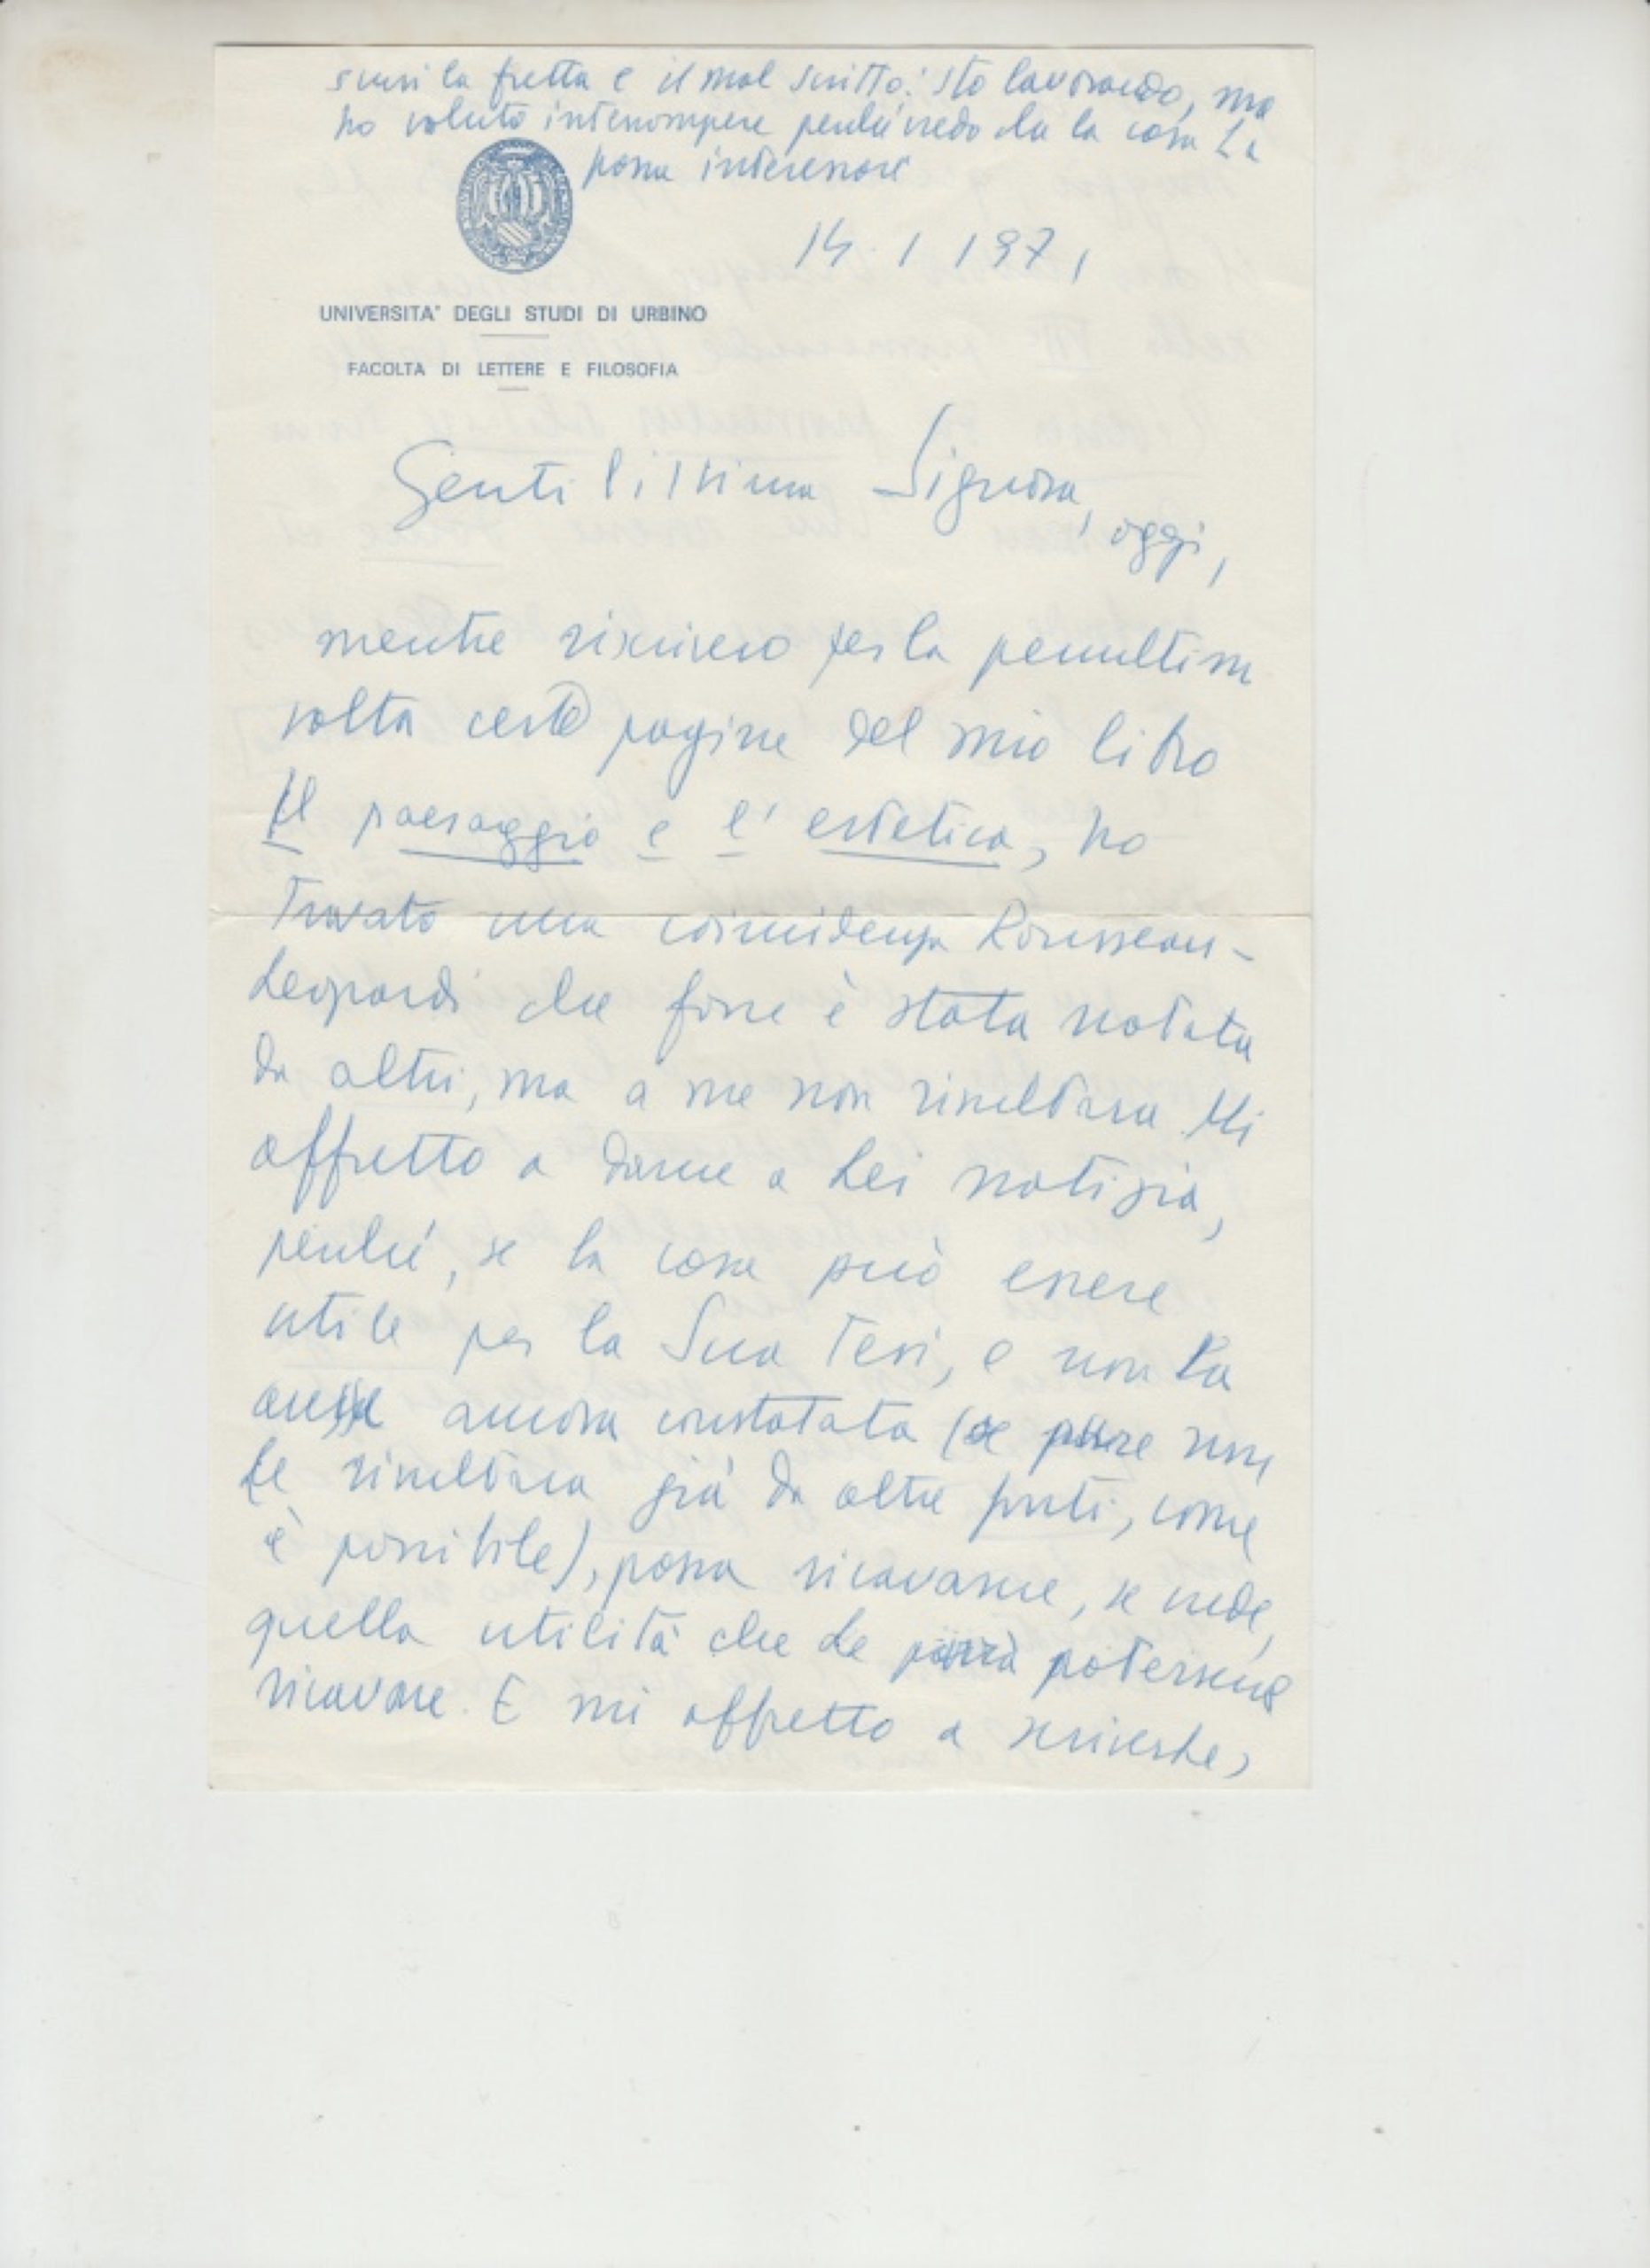 scusi la fretta e il mal scritto: sto lavorando, ma
ho voluto interrompere perché credo che la cosa La
possa interessare
14. 1 1971
UNIVERSITA' DEGLI STUDI DI URBINO
FACOLTA DI LETTERE E FILOSOFIA
Gentilissima Signora, oggi,
mentre riscrivero per la penultima
volta certe pagine del mio libro
Il paesaggio e l'estetica, ho
trovato una coincidenza Rousseau-
Leopardi che forse è stata notata
da altri, ma a me non risultava. Mi
affretto a darne a Lei notizia,
perché, se la cosa può essere
utile per la Sua Tesi, e non l'ha
ancora constatata (se pure non
Le risultava già da altre fonti, come
è possibile), possa ricavarne, se crede,
quella utilità che Le parrà potersene
ricavare. E mi affretto a scriverLe,